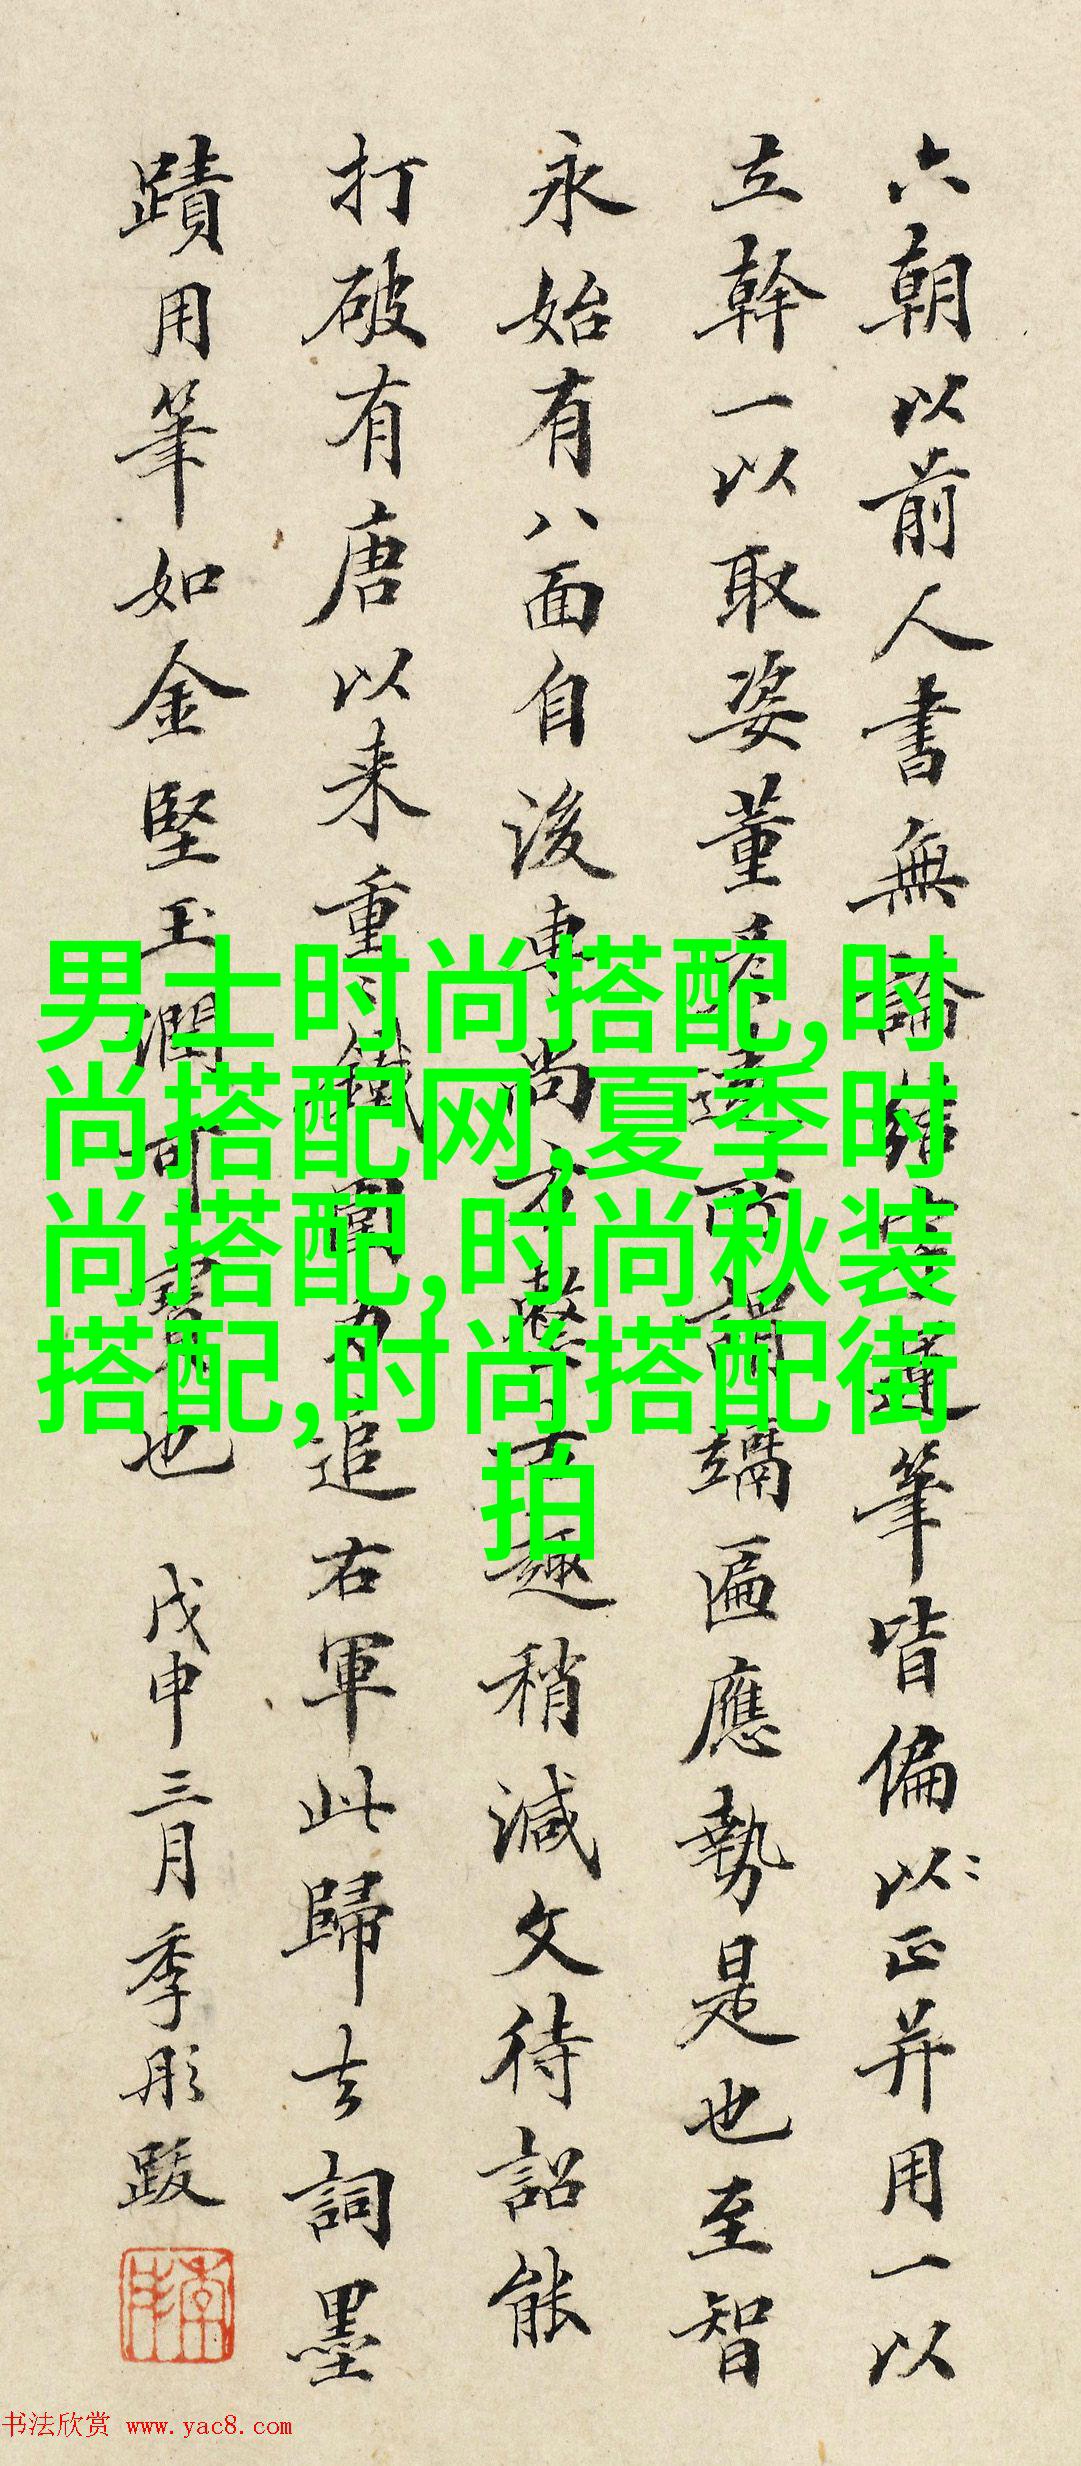 六朝以前人書無論結字運筆皆偏以正并用一以
立幹一以取姿董思遠所謂端匾應勢是也至智
永始有八面自後專尚方整古趣稍減文待詔能
打破有唐以来重〻鐵圍力追右軍此歸去詞墨
蹟用筆如金堅玉潤可寶也 戊申三月季彤跋
男士时尚搭配,时
尚搭配网,夏季时
尚搭配,时尚秋装
搭配,时尚搭配街
拍
书法欣赏 www.yac8.com